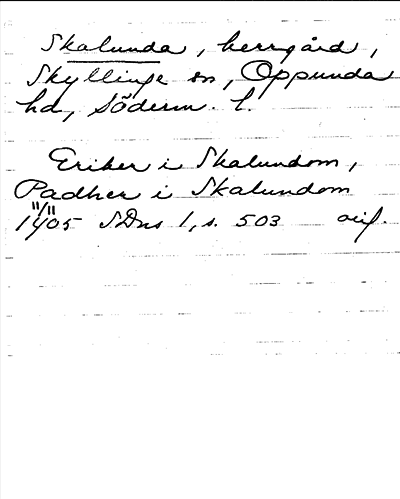 Skalunda, herrgård,
Skyllinge sn, Oppunda
hd, Söderm. l.
Eriker i Skalundom,
Padher i Skalundom
11/11 1405 SDns 1, s. 503 avf.